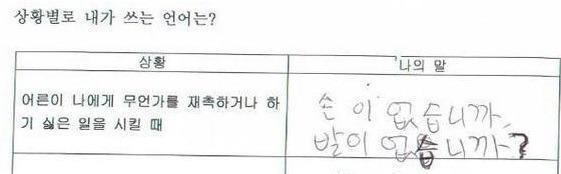 상황별로 내가 쓰는 언어는?
상황
나의 말
어른이 나에게 무언가를 재촉하거나 하
기 싫은 일을 시킬 때
손이 없습니까,
발이 없습니까?